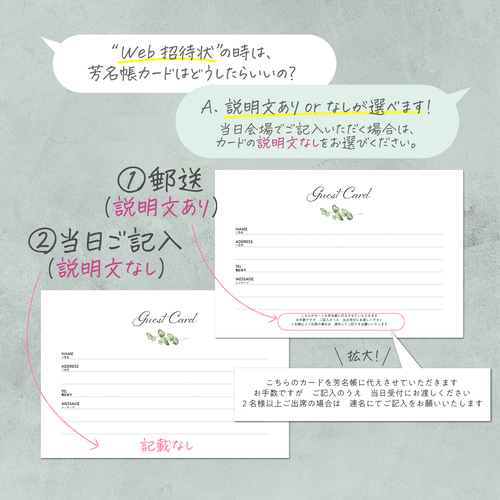 “Web 招待状”の時は、
芳名帳カードはどうしたらいいの?
A. 説明文あり or なしが選べます!
当日会場でご記入いただく場合は、
カードの説明文なしをお選びください。
①郵送
(説明文あり)
②当日ご記入
(説明文なし)
Guest Card
NAME
ご芳名
ADDRESS
ご住所
TEL
電話番号
MESSAGE
メッセージ
こちらのカードを芳名帳に代えさせていただきます
お手数ですが ご記入のうえ 当日受付にお渡しください
2名様以上ご出席の場合は 連名にてご記入をお願いいたします
拡大!
こちらのカードを芳名帳に代えさせていただきます
お手数ですが ご記入のうえ 当日受付にお渡しください
2名様以上ご出席の場合は 連名にてご記入をお願いいたします
Guest Card
NAME
ご芳名
ADDRESS
ご住所
TEL
電話番号
MESSAGE
メッセージ
記載なし